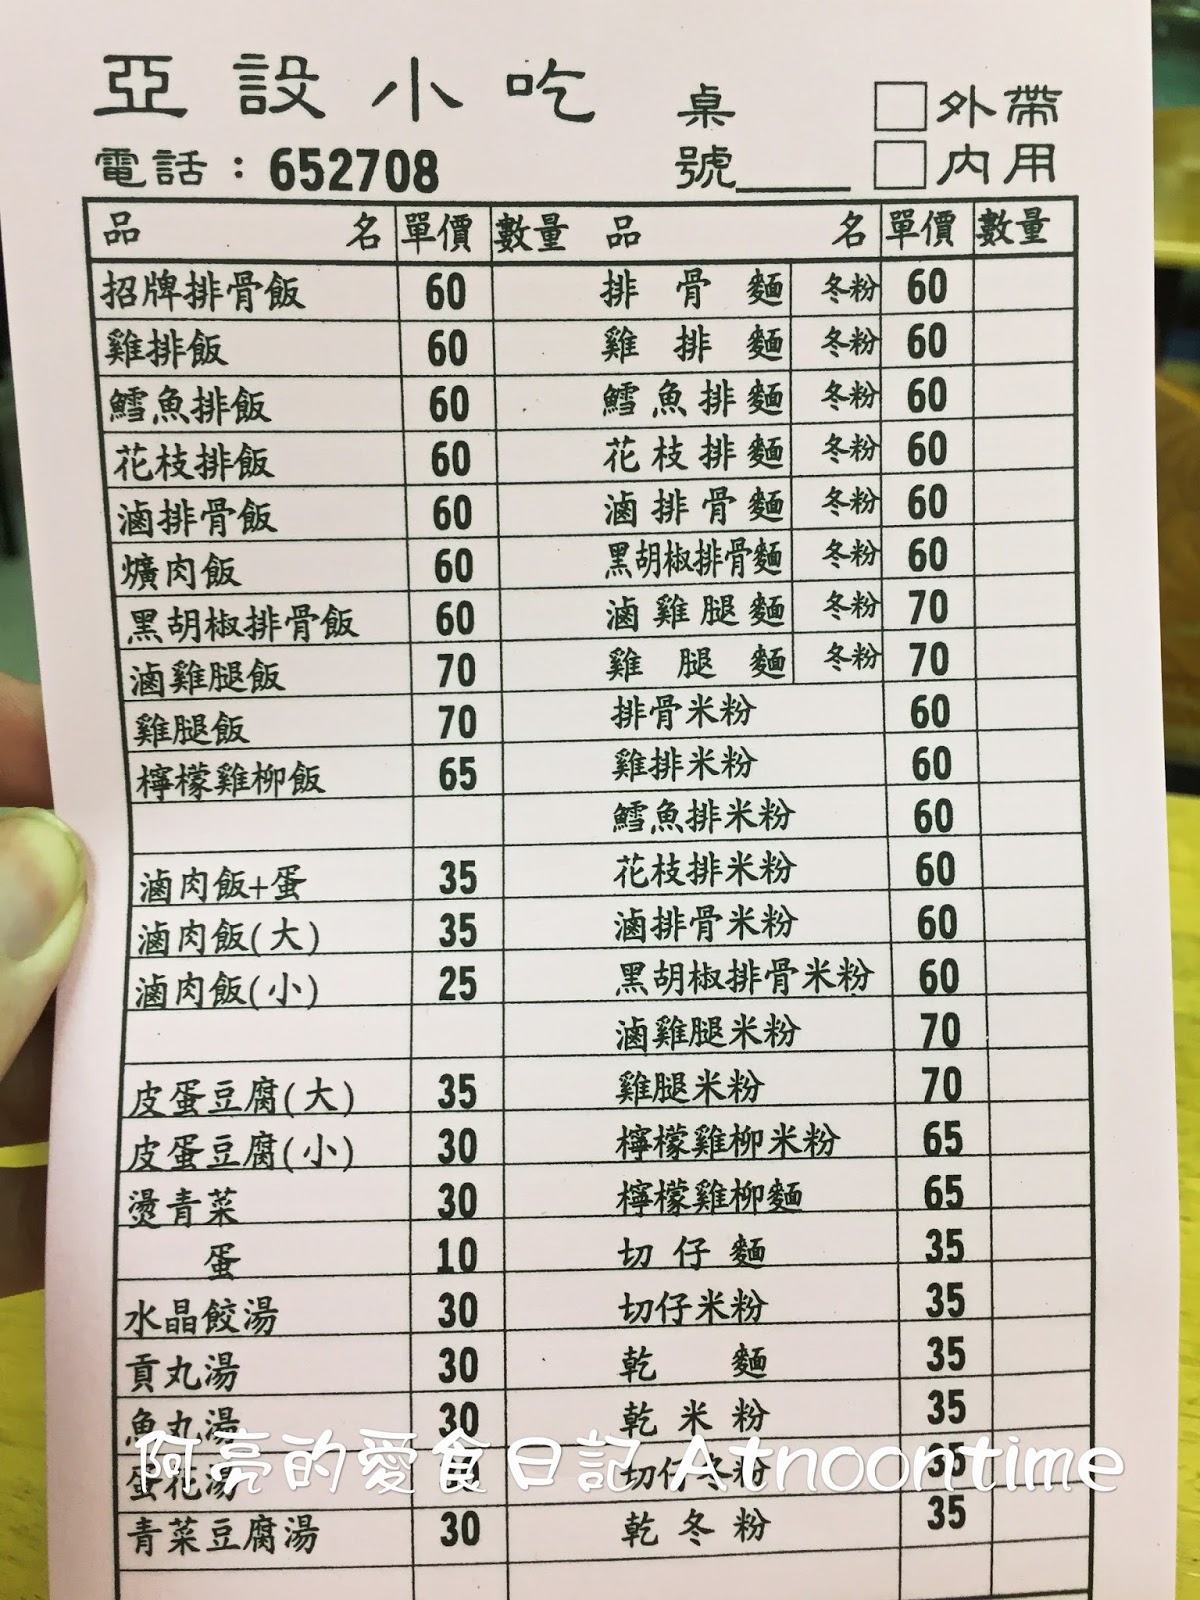 亞設小吃 桌 □外帶
電話：652708 號____ □內用
品名 單價 數量 品名 單價 數量
招牌排骨飯 60 排骨麵 冬粉 60
雞排飯 60 雞排麵 冬粉 60
鱈魚排飯 60 鱈魚排麵 冬粉 60
花枝排飯 60 花枝排麵 冬粉 60
滷排骨飯 60 滷排骨麵 冬粉 60
爌肉飯 60 黑胡椒排骨麵 冬粉 60
黑胡椒排骨飯 60 滷雞腿麵 冬粉 70
滷雞腿飯 70 雞腿麵 冬粉 70
雞腿飯 70 排骨米粉 60
檸檬雞柳飯 65 雞排米粉 60
鱈魚排米粉 60
滷肉飯+蛋 35 花枝排米粉 60
滷肉飯(大) 35 滷排骨米粉 60
滷肉飯(小) 25 黑胡椒排骨米粉 60
滷雞腿米粉 70
皮蛋豆腐(大) 35 雞腿米粉 70
皮蛋豆腐(小) 30 檸檬雞柳米粉 65
燙青菜 30 檸檬雞柳麵 65
蛋 10 切仔麵 35
水晶餃湯 30 切仔米粉 35
貢丸湯 30 乾麵 35
魚丸湯 30 乾米粉 35
蛋花湯 切仔冬粉 35
青菜豆腐湯 30 乾冬粉 35
阿亮的愛食日記 Atnoontime